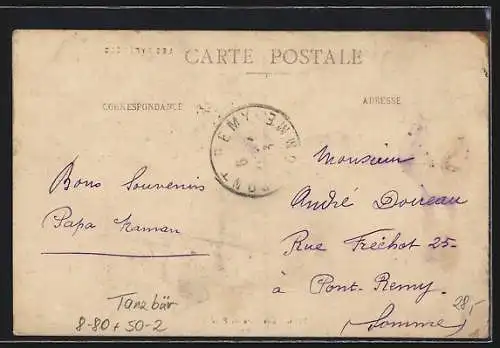 CARTE POSTALE
CORRESPONDANCE
ADRESSE
PONT REMY SOMME
Bons Souvenirs
Papa Maman
Monsieur
André Doireau
Rue Fréchot 25-
à Pont-Remy.
(Somme)
Tanzbär
8-80+50-2
28,-